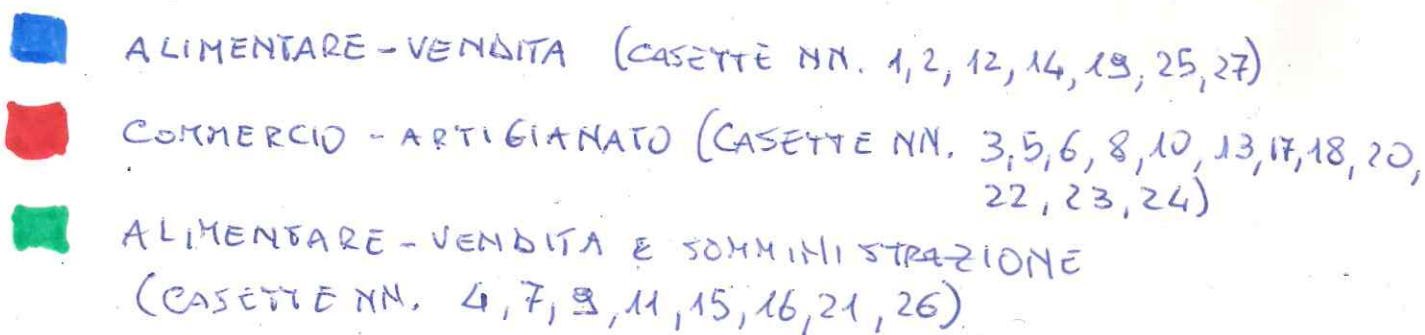 ALIMENTARE - VENDITA (CASETTE NN. 1, 2, 12, 14, 19, 25, 27)
COMMERCIO - ARTIGIANATO (CASETTE NN. 3, 5, 6, 8, 10, 13, 17, 18, 20,
22, 23, 24)
ALIMENTARE - VENDITA E SOMMINISTRAZIONE
(CASETTE NN. 4, 7, 9, 11, 15, 16, 21, 26)